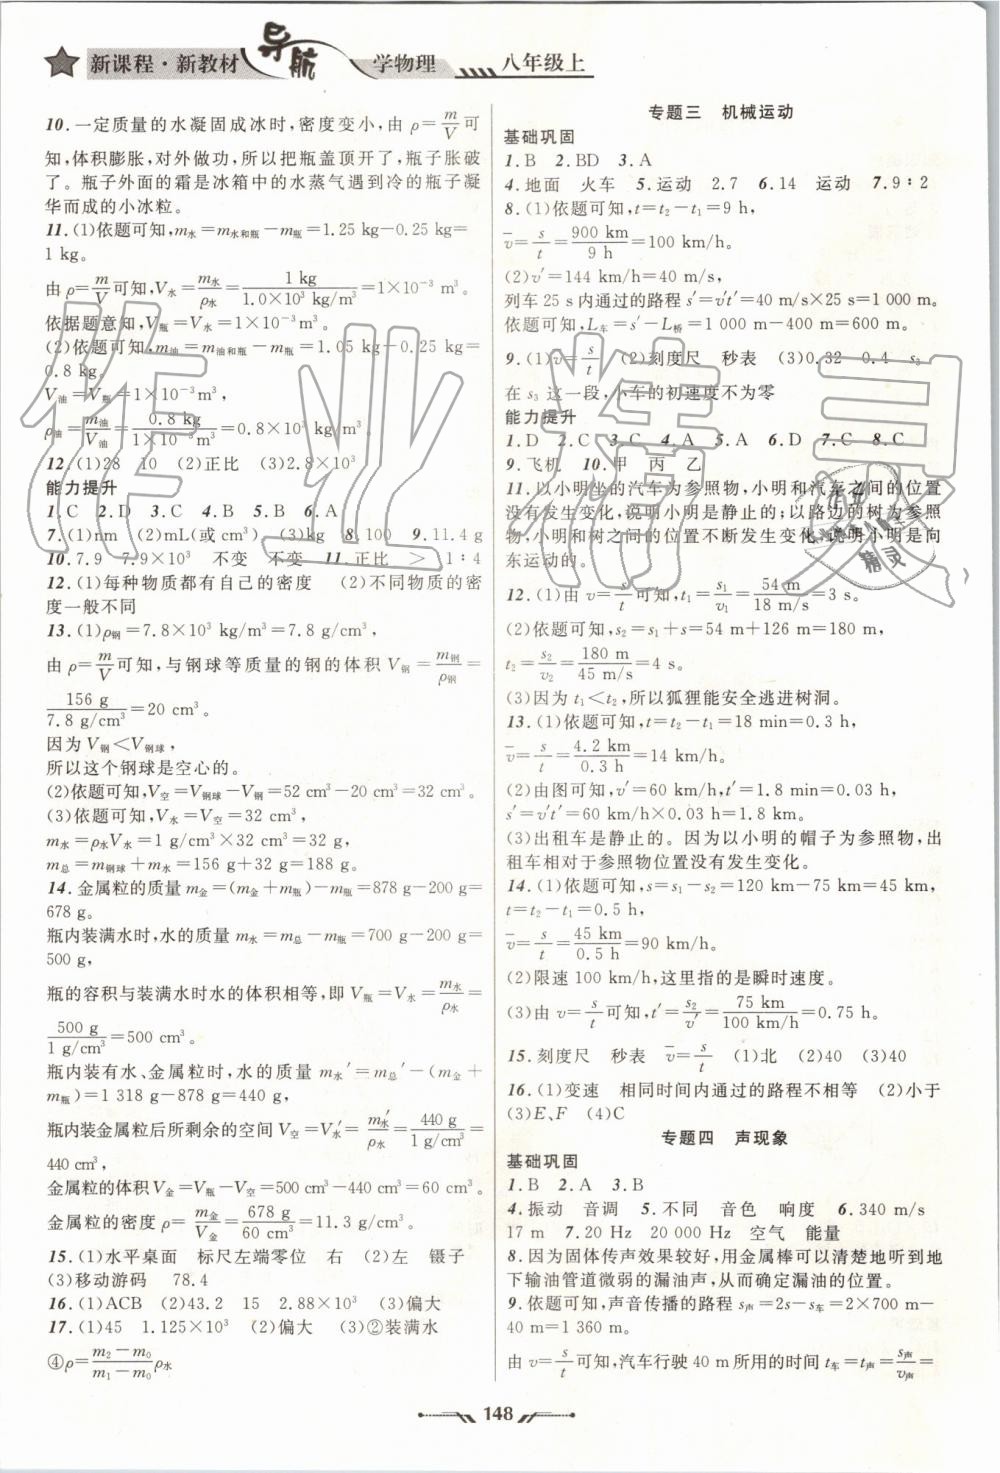 新课程·新教材 导航 学物理 八年级上
10.一定质量的水凝固成冰时,密度变小,由 ρ=m/V 可
知,体积膨胀,对外做功,所以把瓶盖顶开了,瓶子胀破
了。瓶子外面的霜是冰箱中的水蒸气遇到冷的瓶子凝
华而成的小冰粒。
11.(1)依题可知,m水=m水和瓶-m瓶=1.25 kg-0.25 kg=
1 kg。
由 ρ=m/V 可知,V水=m水/ρ水=1 kg/(1.0×10³ kg/m³)=1×10⁻³ m³。
依据题意知,V瓶=V水=1×10⁻³m³。
(2)依题可知,m油=m油和瓶-m瓶=1.05 kg-0.25 kg=
0.8 kg。
V油=V瓶=1×10⁻³m³,
ρ油=m油/V油=0.8 kg/(1×10⁻³ m³)=0.8×10³ kg/m³。
12.(1)28 10 (2)正比 (3)2.8×10³
能力提升
1.C 2.D 3.C 4.B 5.B 6.A
7.(1)nm (2)mL(或 cm³) (3)kg 8.100 9.11.4 g
10.7.9 7.9×10³ 不变 不变 11.正比 > 1∶4
12.(1)每种物质都有自己的密度 (2)不同物质的密
度一般不同
13.(1)ρ钢=7.8×10³ kg/m³=7.8 g/cm³,
由 ρ=m/V 可知,与钢球等质量的钢的体积 V钢=m钢/ρ钢=
156 g/(7.8 g/cm³)=20 cm³。
因为 V钢<V钢球,
所以这个钢球是空心的。
(2)依题可知,V空=V钢球-V钢=52 cm³-20 cm³=32 cm³。
(3)依题可知,V水=V空=32 cm³,
m水=ρ水V水=1 g/cm³×32 cm³=32 g,
m总=m钢球+m水=156 g+32 g=188 g。
14.金属粒的质量 m金=(m金+m瓶)-m瓶=878 g-200 g=
678 g。
瓶内装满水时,水的质量 m水=m总-m瓶=700 g-200 g=
500 g,
瓶的容积与装满水时水的体积相等,即 V瓶=V水=m水/ρ水=
500 g/(1 g/cm³)=500 cm³。
瓶内装有水、金属粒时,水的质量 m水′=m总′-(m金+
m瓶)=1 318 g-878 g=440 g,
瓶内装金属粒后所剩余的空间 V空=V水′=m水′/ρ水=440 g/(1 g/cm³)=
440 cm³,
金属粒的体积 V金=V瓶-V空=500 cm³-440 cm³=60 cm³。
金属粒的密度 ρ=m金/V金=678 g/(60 cm³)=11.3 g/cm³。
15.(1)水平桌面 标尺左端零位 右 (2)左 镊子
(3)移动游码 78.4
16.(1)ACB (2)43.2 15 2.88×10³ (3)偏大
17.(1)45 1.125×10³ (2)偏大 (3)②装满水
④ρ=(m₂-m₀)/(m₁-m₀)ρ水
专题三 机械运动
基础巩固
1.B 2.BD 3.A
4.地面 火车 5.运动 2.7 6.14 运动 7.9∶2
8.(1)依题可知,t=t₂-t₁=9 h,
v̄=s/t=900 km/9 h=100 km/h。
(2)v′=144 km/h=40 m/s,
列车25 s内通过的路程 s′=v′t′=40 m/s×25 s=1 000 m。
依题可知,L车=s′-L桥=1 000 m-400 m=600 m。
9.(1)v=s/t (2)刻度尺 秒表 (3)0.32 0.4 s₃
在 s₃ 这一段,小车的初速度不为零
能力提升
1.D 2.C 3.C 4.A 5.A 6.D 7.C 8.C
9.飞机 10.甲 丙 乙
11.以小明坐的汽车为参照物,小明和汽车之间的位置
没有发生变化,说明小明是静止的;以路边的树为参照
物,小明和树之间的位置不断发生变化,说明小明是向
东运动的。
12.(1)由 v=s/t 可知,t₁=s₁/v₁=54 m/(18 m/s)=3 s。
(2)依题可知,s₂=s₁+s=54 m+126 m=180 m,
t₂=s₂/v₂=180 m/(45 m/s)=4 s。
(3)因为 t₁<t₂,所以狐狸能安全逃进树洞。
13.(1)依题可知,t=t₂-t₁=18 min=0.3 h,
v̄=s/t=4.2 km/0.3 h=14 km/h。
(2)由图可知,v′=60 km/h,t′=1.8 min=0.03 h,
s′=v′t′=60 km/h×0.03 h=1.8 km。
(3)出租车是静止的。因为以小明的帽子为参照物,出
租车相对于参照物位置没有发生变化。
14.(1)依题可知,s=s₁-s₂=120 km-75 km=45 km,
t=t₂-t₁=0.5 h,
v̄=s/t=45 km/0.5 h=90 km/h。
(2)限速 100 km/h,这里指的是瞬时速度。
(3)由 v=s/t 可知,t′=s₂/v′=75 km/(100 km/h)=0.75 h。
15.刻度尺 秒表 v̄=s/t (1)北 (2)40 (3)40
16.(1)变速 相同时间内通过的路程不相等 (2)小于
(3)E、F (4)C
专题四 声现象
基础巩固
1.B 2.A 3.B
4.振动 音调 5.不同 音色 响度 6.340 m/s
17 m 7.20 Hz 20 000 Hz 空气 能量
8.因为固体传声效果较好,用金属棒可以清楚地听到地
下输油管道微弱的漏油声,从而确定漏油的位置。
9.依题可知,声音传播的路程 s声=2s-s车=2×700 m-
40 m=1 360 m。
由 v=s/t 可知,汽车行驶 40 m 所用的时间 t车=t声=s声/v声=
148
作业精灵